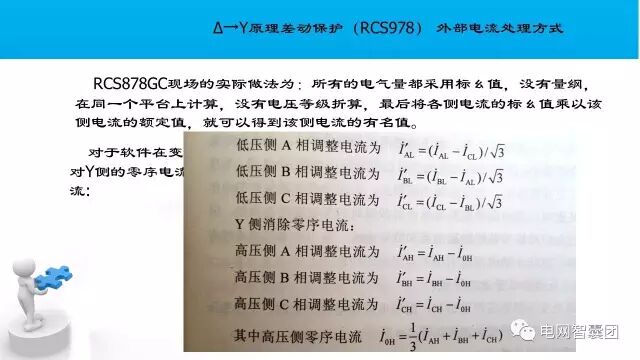 Δ→Y原理差动保护（RCS978） 外部电流处理方式
RCS878GC现场的实际做法为：所有的电气量都采用标幺值，没有量纲，
在同一个平台上计算，没有电压等级折算，最后将各侧电流的标幺值乘以该
侧电流的额定值，就可以得到该侧电流的有名值。
对于软件在变
对Y侧的零序电流
流：
低压侧 A 相调整电流为 İ′AL=(İAL−İCL)/√3
低压侧 B 相调整电流为 İ′BL=(İBL−İAL)/√3
低压侧 C 相调整电流为 İ′CL=(İCL−İBL)/√3
Y 侧消除零序电流：
高压侧 A 相调整电流为 İ′AH=İAH−İ0H
高压侧 B 相调整电流为 İ′BH=İBH−İ0H
高压侧 C 相调整电流为 İ′CH=İCH−İ0H
其中高压侧零序电流 İ0H=1/3(İAH+İBH+İCH)
电网智囊团